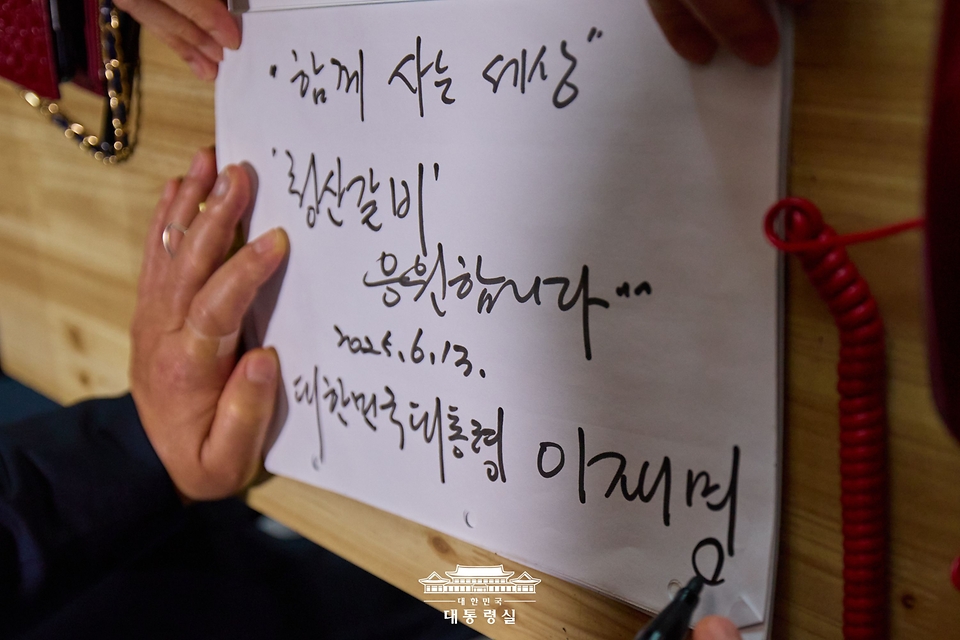 "함께 사는 세상"
'형산갈비'
응원합니다~~
2025.6.13.
대한민국대통령 이재명
대한민국
대통령실